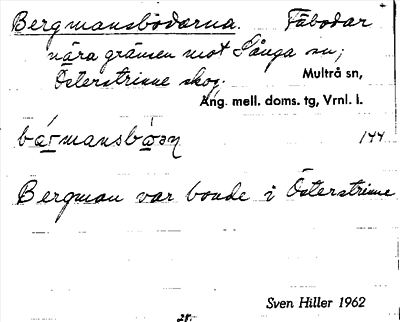 Bergmansbodarna. Fäbodar
nära gränsen mot Sånga sn;
Österstrinne skog. Multrå sn,
Ång. mell. doms. tg, Vrnl. l.
144
Bergman var bonde i Österstrinne
Sven Hiller 1962